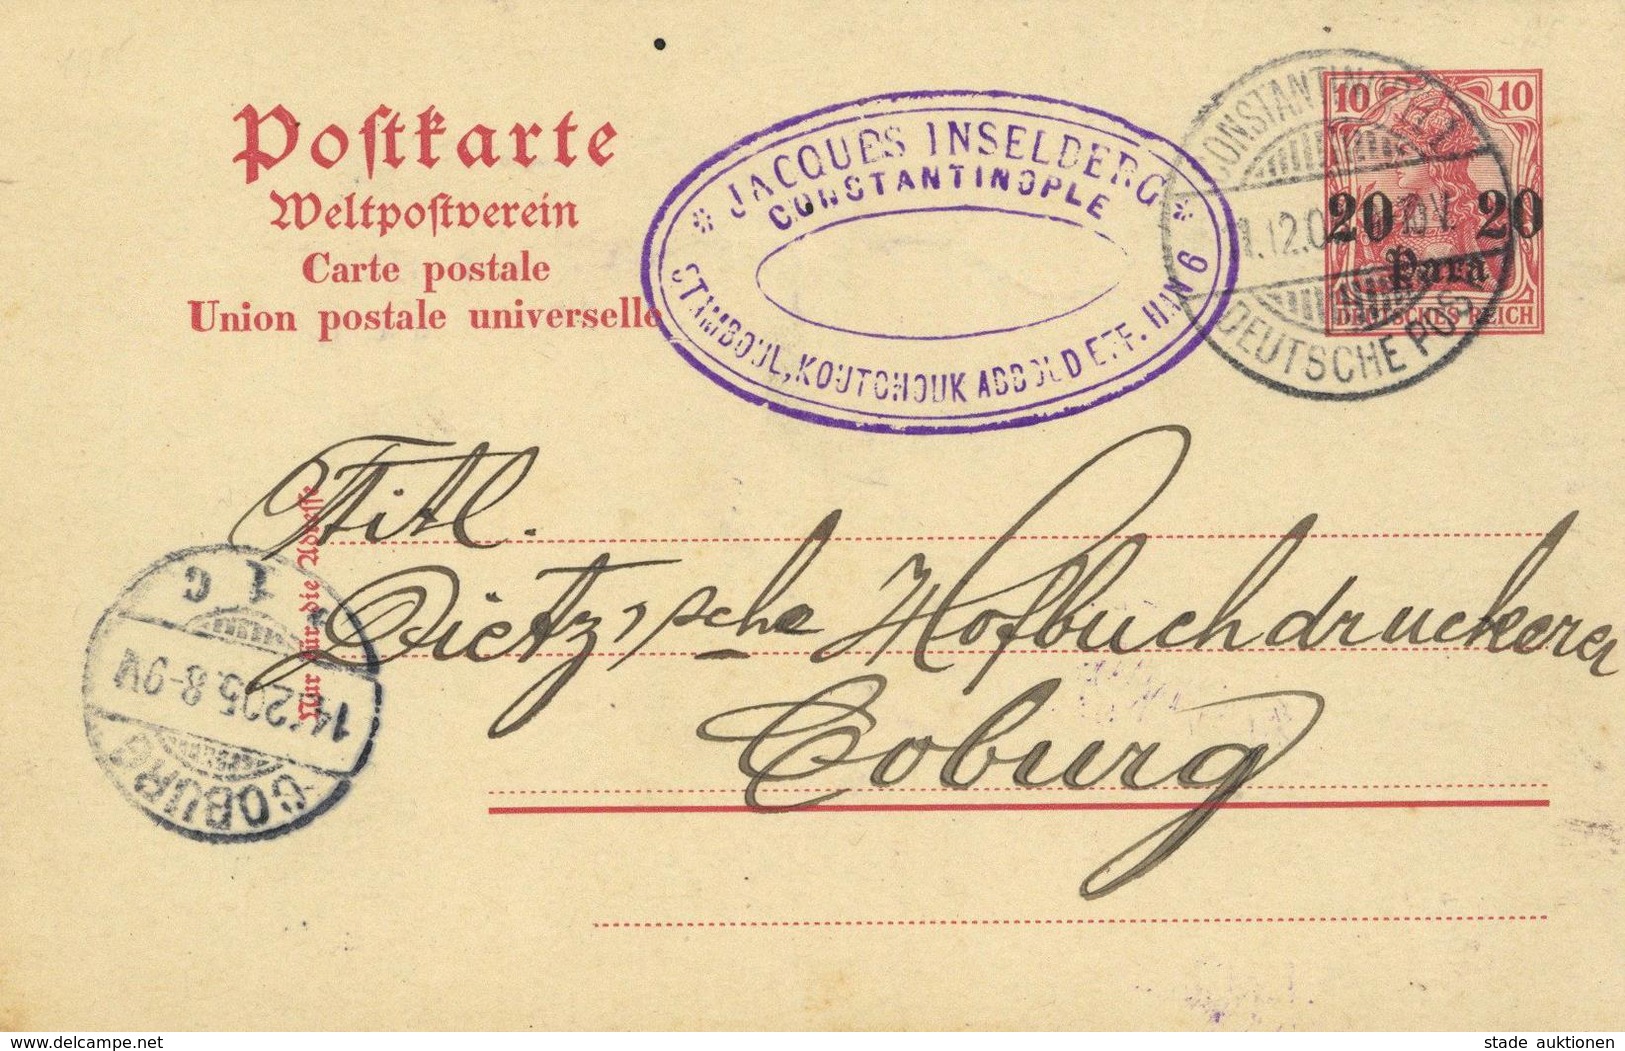 Postkarte
Weltpostverein
Carte postale
Union postale universelle
JACQUES INSELBERG
CONSTANTINOPLE
STAMBOUL, KOUTCHOUK ABBOUD EFF. HAN 6
CONSTANTINOPEL 1
DEUTSCHE POST
10 10
20 20
Para
DEUTSCHES REICH
Nur für die Adresse
Titl.
Dietz'sche Hofbuchdruckerei
Coburg
COBURG
14.12.05. 8-9V
1 C
delcampe.net
stade auktionen